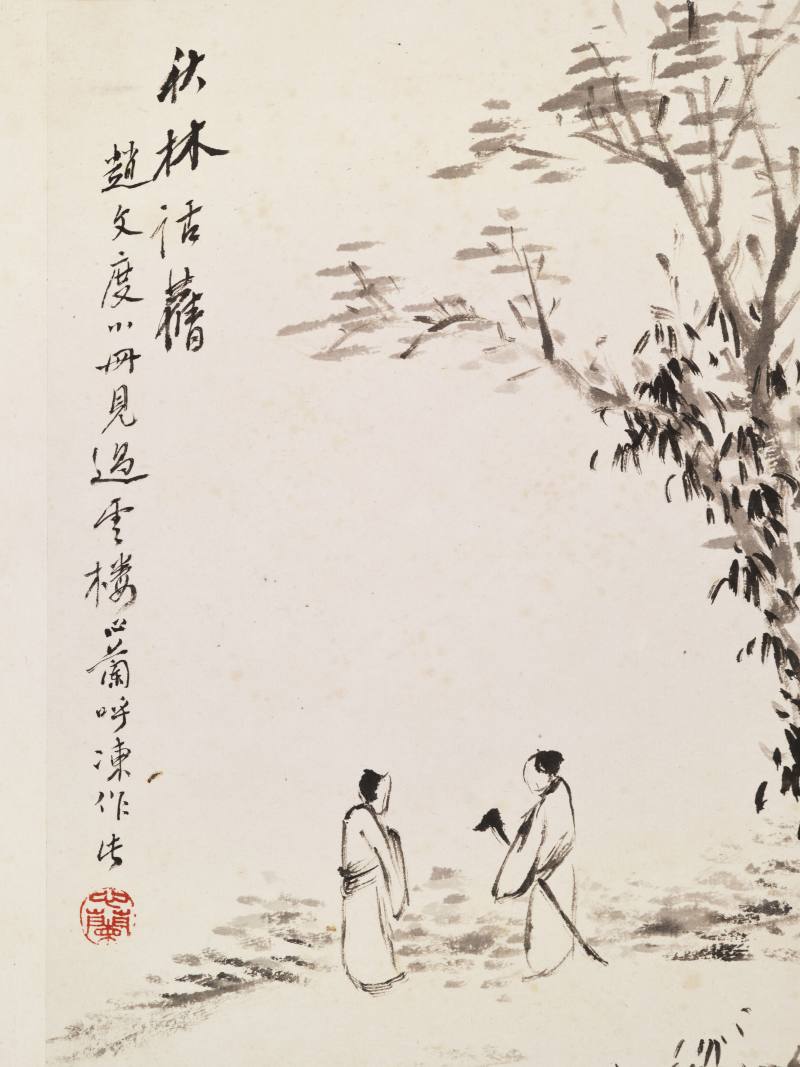 秋林話舊
趙文度小冊見過雲楼心蘭呼凍作
心蘭